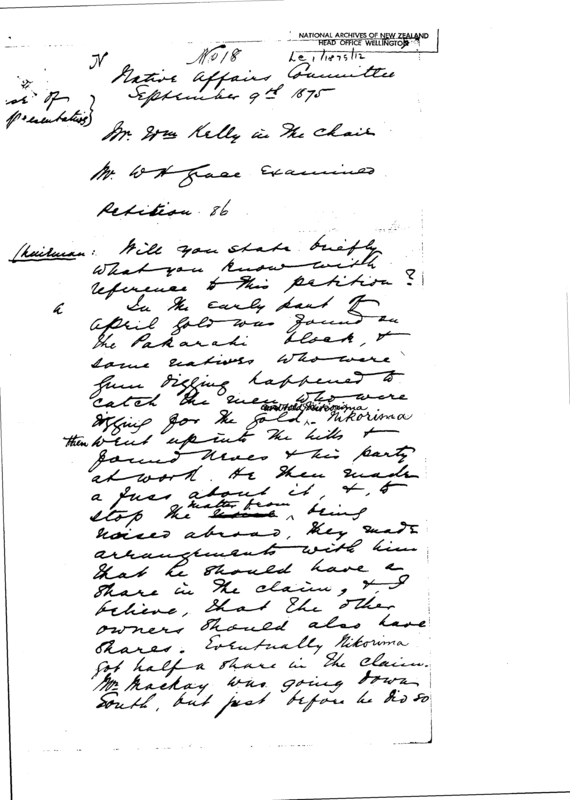 NATIONAL ARCHIVES OF NEW ZEALAND
HEAD OFFICE WELLINGTON
N No 18 Le 1/1875/12
Native Affairs Committee
September 9th 1875
of
Mr. Wm Kelly in the Chair
Mr. W H Grace Examined
Petition 86
Chairman: Will you state briefly
what you know with
reference to this petition?
a In the early part of
April gold was found on
the Pakarahi block, &
some natives who were
gum digging happened to
catch the men who were
and told Nikorima
digging for the gold. Nikorima
then went up into the hills &
found & his party
at work. He then made
a fuss about it, &, to
matter from
stop the being
noised abroad, they made
arrangements with him
that he should have a
share in the claim, & I
believe, that the other
owners should also have
shares. Eventually Nikorima
got half a share in the claim.
Mr Mackay was going down
South, but just before he did so